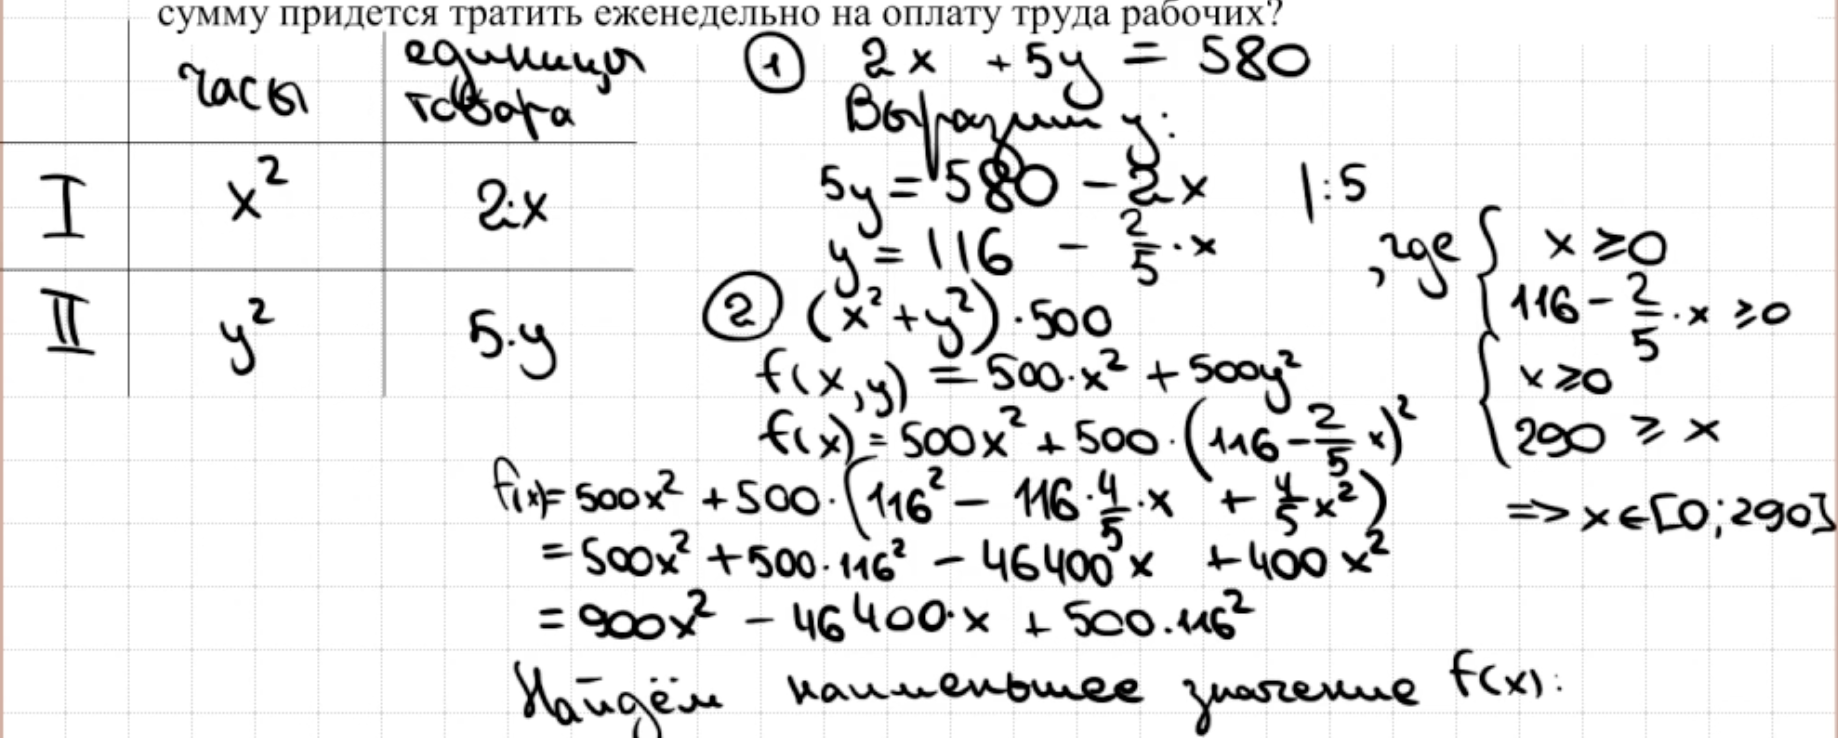 сумму придется тратить еженедельно на оплату труда рабочих?
часы единицы товара
I x² 2·x
II y² 5·y
① 2x + 5y = 580
Выразим y:
5y = 580 - 2x |:5
y = 116 - 2/5 · x , где { x ≥ 0
116 - 2/5 · x ≥ 0
{ x ≥ 0
290 ≥ x
=> x ∈ [0; 290]
② (x² + y²) · 500
f(x, y) = 500·x² + 500y²
f(x) = 500x² + 500 · (116 - 2/5 x)²
f(x) = 500x² + 500 · (116² - 116 · 4/5 · x + 4/5 x²)
= 500x² + 500 · 116² - 46400 x + 400 x²
= 900x² - 46400·x + 500·116²
Найдём наименьшее значение f(x):